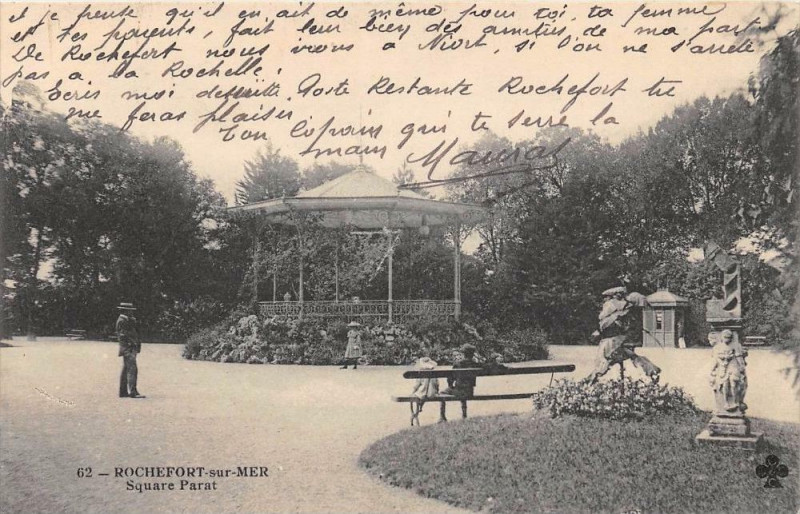 et je pense qu'il en ait de même pour toi, ta femme
et tes parents, fait leur bien des amitiés de ma part
De Rochefort nous irons à Niort, si l'on ne s'arrête
pas à la Rochelle.
Ecris moi de suite. Poste Restante Rochefort tu
me feras plaisir
Ton Copain qui te serre la
main
62 — ROCHEFORT-sur-MER
Square Parat